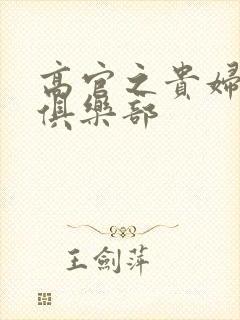 高官之貴婦
俱樂部
王劍萍